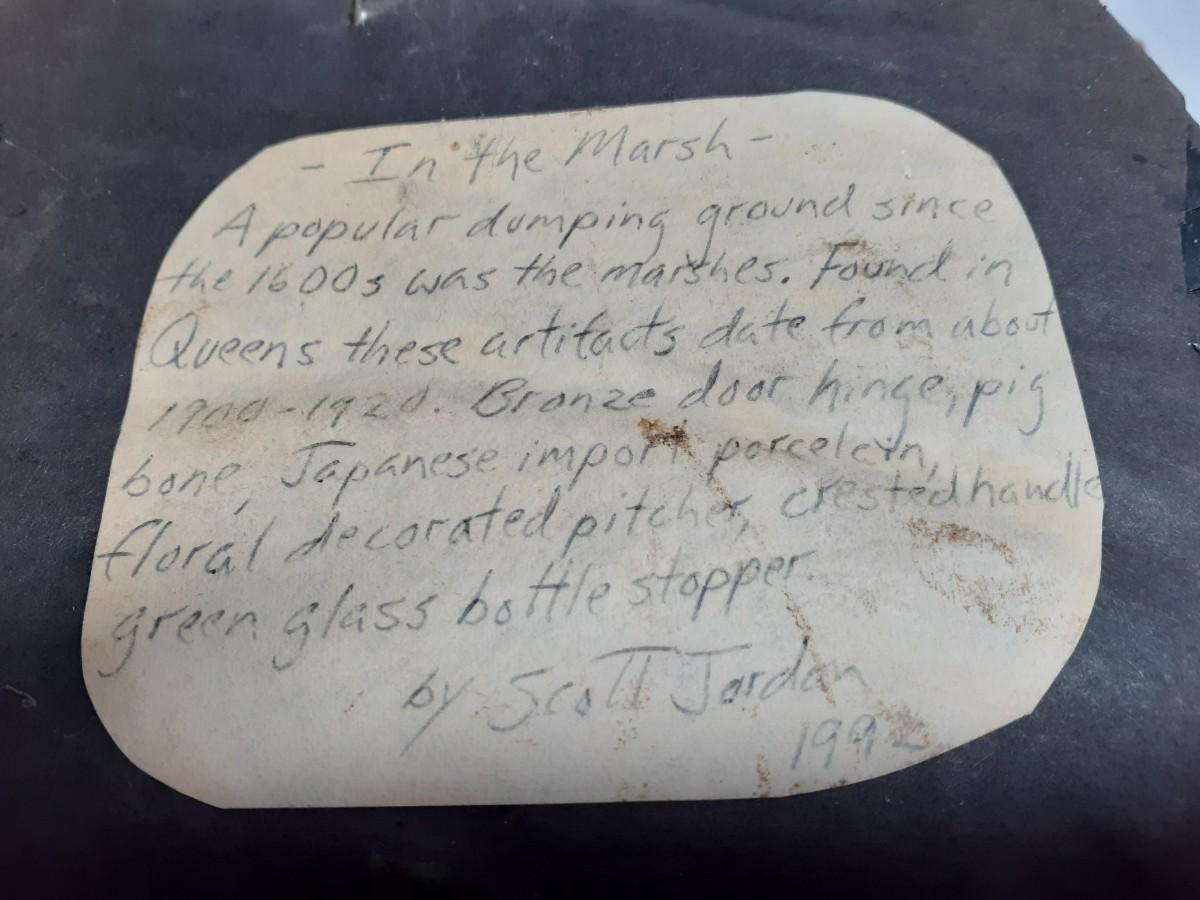 - In the Marsh -
A popular dumping ground since
the 1600s was the marshes. Found in
Queens these artifacts date from about
1900-1920. Bronze door hinge, pig
bone, Japanese import porcelein,
floral decorated pitcher, crested handle
green glass bottle stopper.
by Scott Jordan
1992